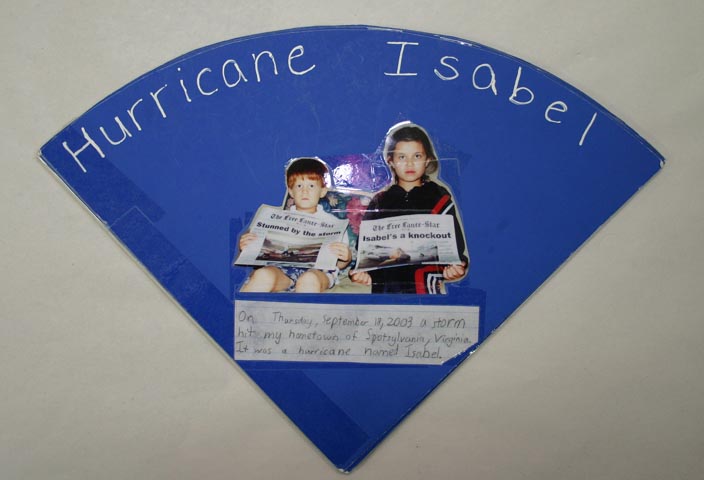 Hurricane Isabel
The Free Lance-Star
Stunned by the storm
The Free Lance-Star
Isabel's a knockout
On Thursday, September 18, 2003 a storm
hit my hometown of Spotsylvania, Virginia.
It was a hurricane named Isabel.